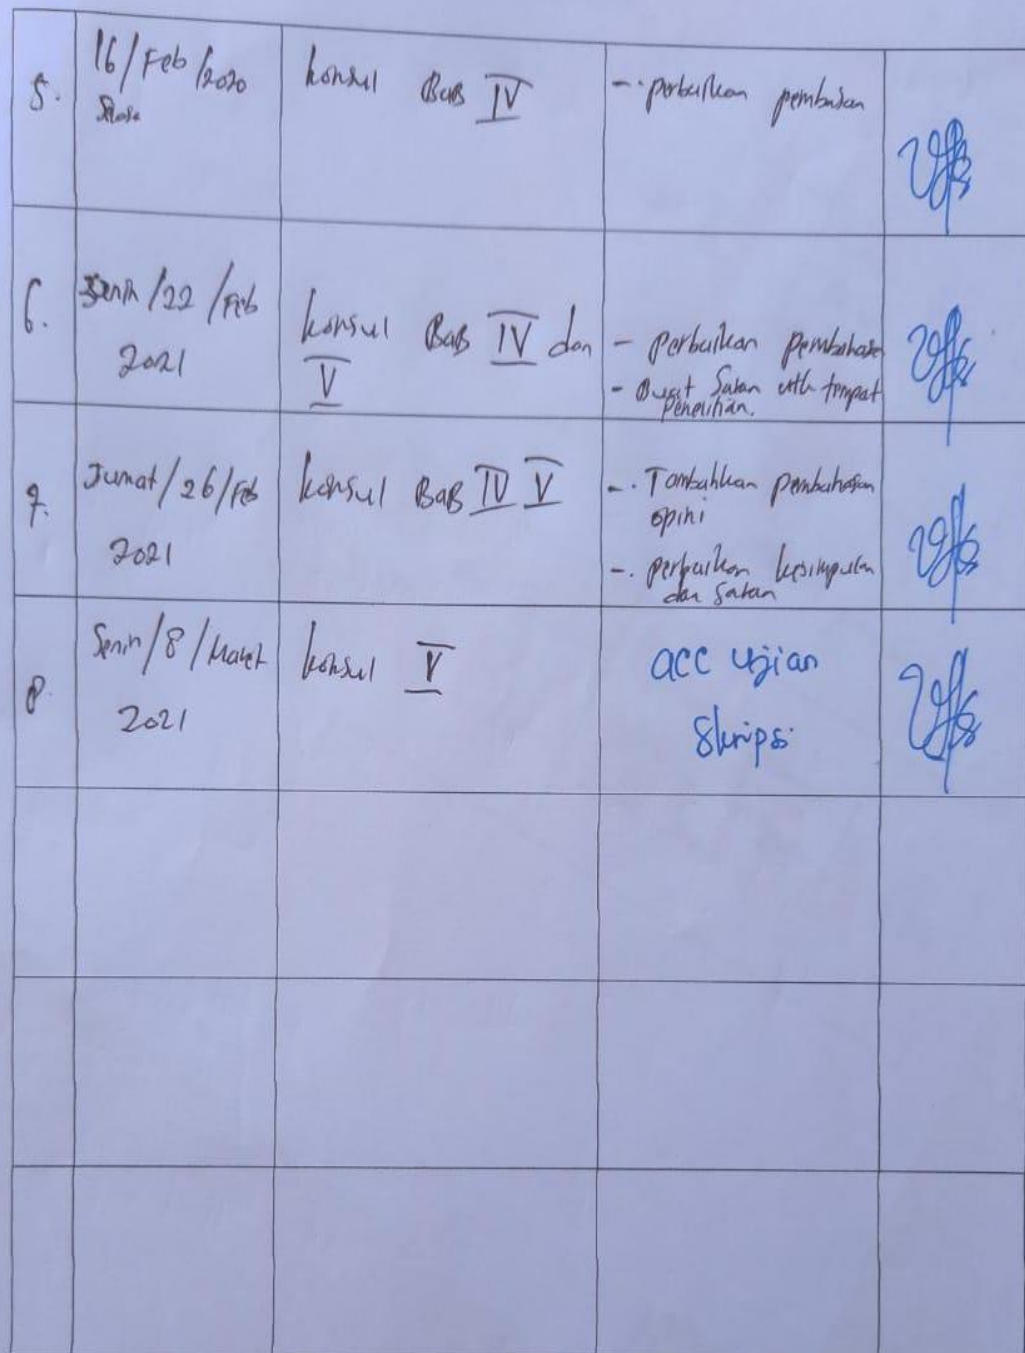 5.
16/Feb/2020
Selasa
konsul BaB IV
-. perbaikan pembasan
6.
Senin/22/Feb
2021
konsul BaB IV dan
V
- perbaikan pembahasa
- Buat Saran utk tempat
penelitian.
7.
Jumat/26/Feb
2021
konsul BaB IV V
-. Tambahkan pembahasan
opini
-. perbaikan kesimpulan
dan Saran
8.
Senin/8/Maret
2021
konsul V
acc Ujian
Skripsi